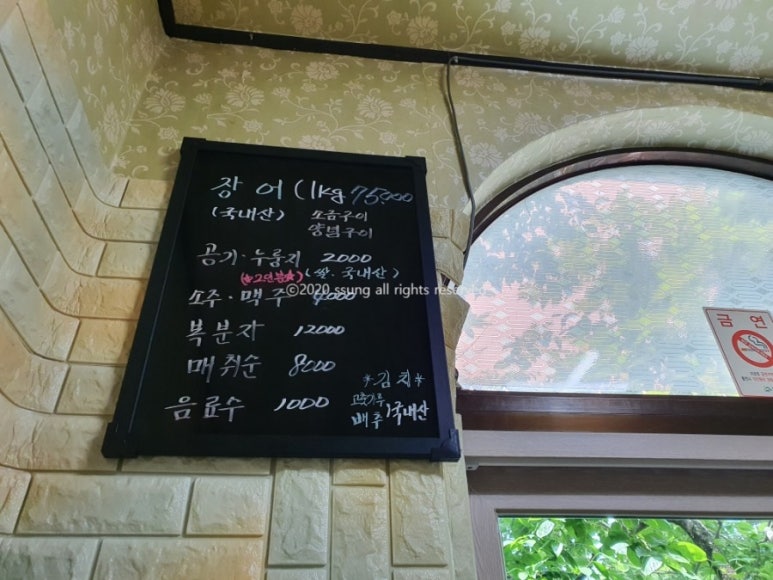 장어 (1kg 75,000
(국내산) 소금구이
양념구이
공기·누룽지 2000
(쌀·국내산)
©2020 ssung all rights
소주·맥주 4000
복분자 12000
매취순 8000
음료수 1000
*김치*
고춧가루
배추 국내산
금연